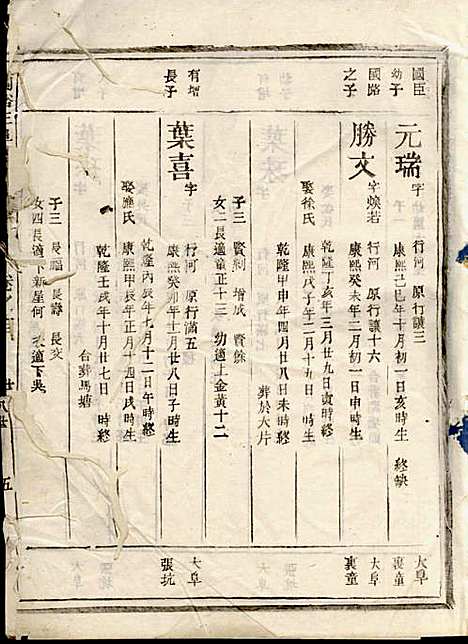 國臣 幼子 元瑞 字 行河 原行讓三
康熙己巳年十月初一日亥時生 終缺
大阜 裏童
國路 之子 勝文 字煥若 行河 原行讓十六
康熙癸未年二月初一日申時生
乾隆丁亥年三月廿九日寅時終
大阜 裏童
娶徐氏 康熙戊子年二月十九日 時生
乾隆甲申年四月廿八日未時終
葬於大片
子三 賢剩 增成 賢餘
女二長適童正十三 幼適上金黃十二
有增 長子 葉喜 字 行河 原行滿五
康熙癸卯年十一月廿八日子時生
乾隆丙辰年七月十二日午時終
大阜 張坑
娶應氏 康熙甲辰年正月十四日戌時生
乾隆壬戌年十月廿七日 時終
合葬馬塘
子三 長福 長壽 長交
女四長適下新屋何 適下吳
五